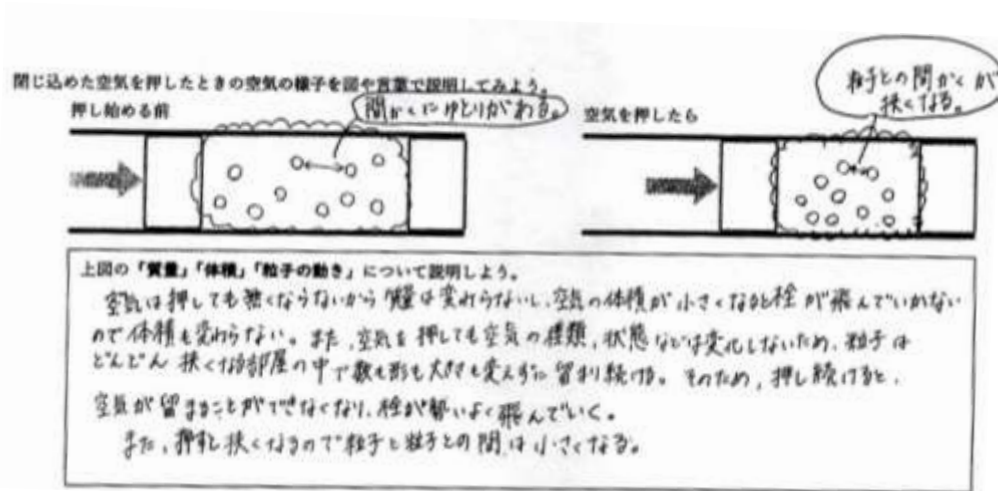 閉じ込めた空気を押したときの空気の様子を図や言葉で説明してみよう。
押し始める前
間かくにゆとりがある。
空気を押したら
粒子との間かくが
狭くなる。
上図の「質量」「体積」「粒子の動き」について説明しよう。
空気は押しても無くならないから質量は変わらないし、空気の体積が小さくなると栓が飛んでいかない
ので体積も変わらない。また、空気を押しても空気の種類、状態などは変化しないため、粒子は
どんどん狭くなる部屋の中で数も形も大きさも変えずに留まり続ける。そのため、押し続けると、
空気が留まることができなくなり、栓が勢いよく飛んでいく。
また、押すと狭くなるので粒子と粒子との間は小さくなる。